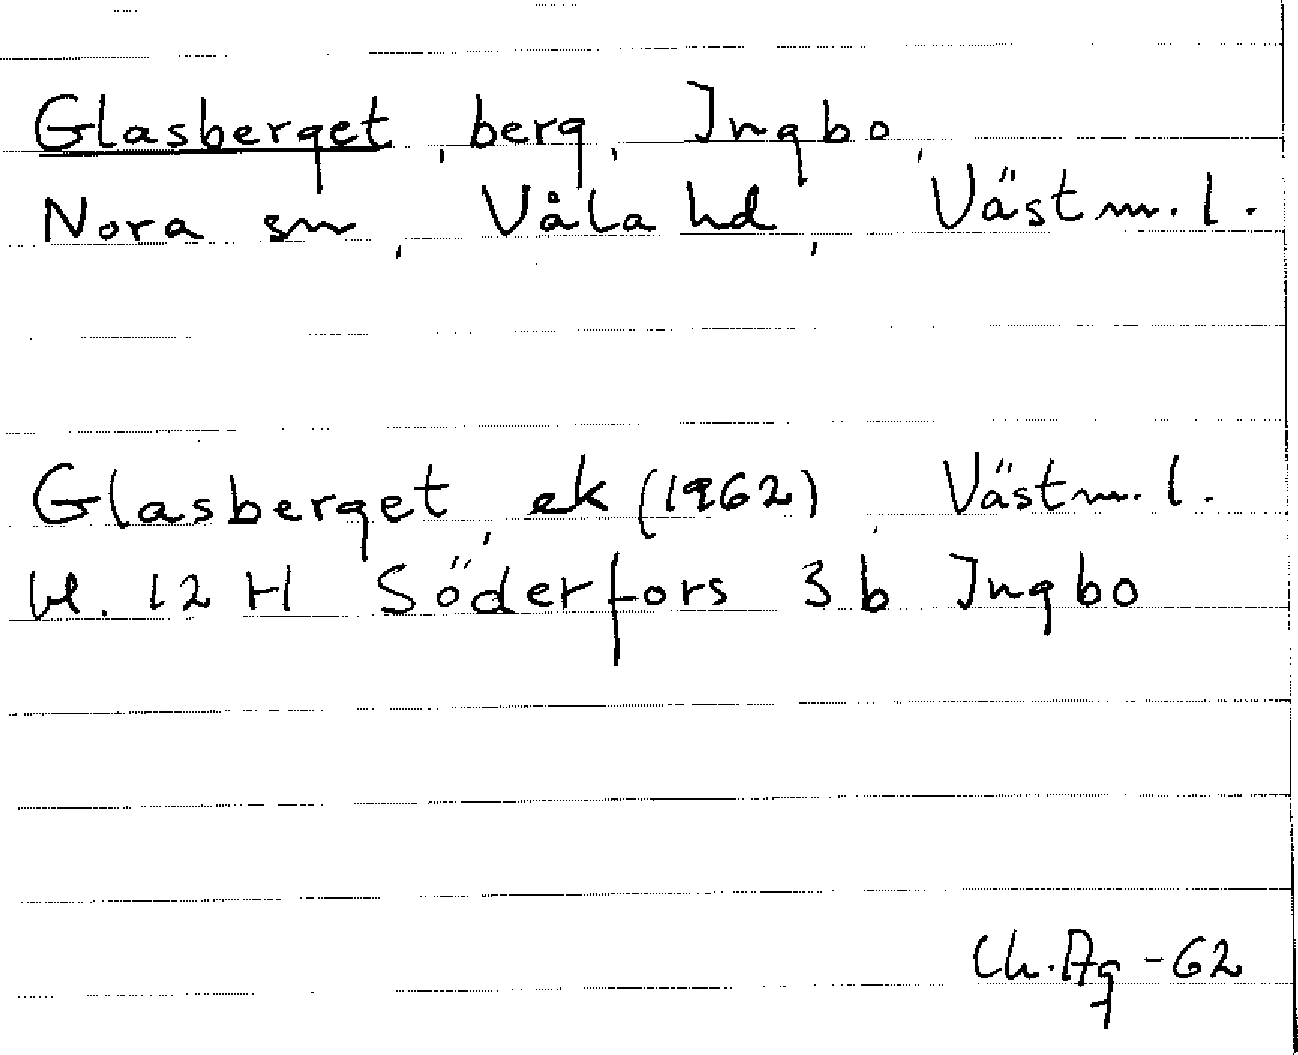 Glasberget, berg, Ingbo,
Nora sn, Våla hd, Västm. l.
Glasberget, ek (1962), Västm. l.
bl. 12 H Söderfors 3 b Ingbo
Ch. Ag -62